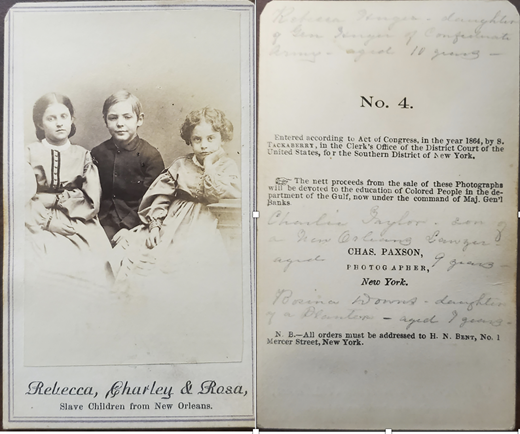 Rebecca, Charley & Rosa,
Slave Children from New Orleans.
Rebecca Huger - daughter
of Gen Huger of Confederate
Army - aged 10 years -
No. 4.
Entered according to Act of Congress, in the year 1864, by S.
TACKABERRY, in the Clerk's Office of the District Court of the
United States, for the Southern District of New York.
☞ The nett proceeds from the sale of these Photographs
will be devoted to the education of Colored People in the de-
partment of the Gulf, now under the command of Maj. Gen'l
Banks
Charlie Taylor - son of
a New Orleans Lawyer
aged 9 years -
CHAS. PAXSON,
PHOTOGRAPHER,
New York.
Rosina Downs - daughter
of a Planter - aged 7 years -
N. B.—All orders must be addressed to H. N. BENT, No. 1
Mercer Street, New York.